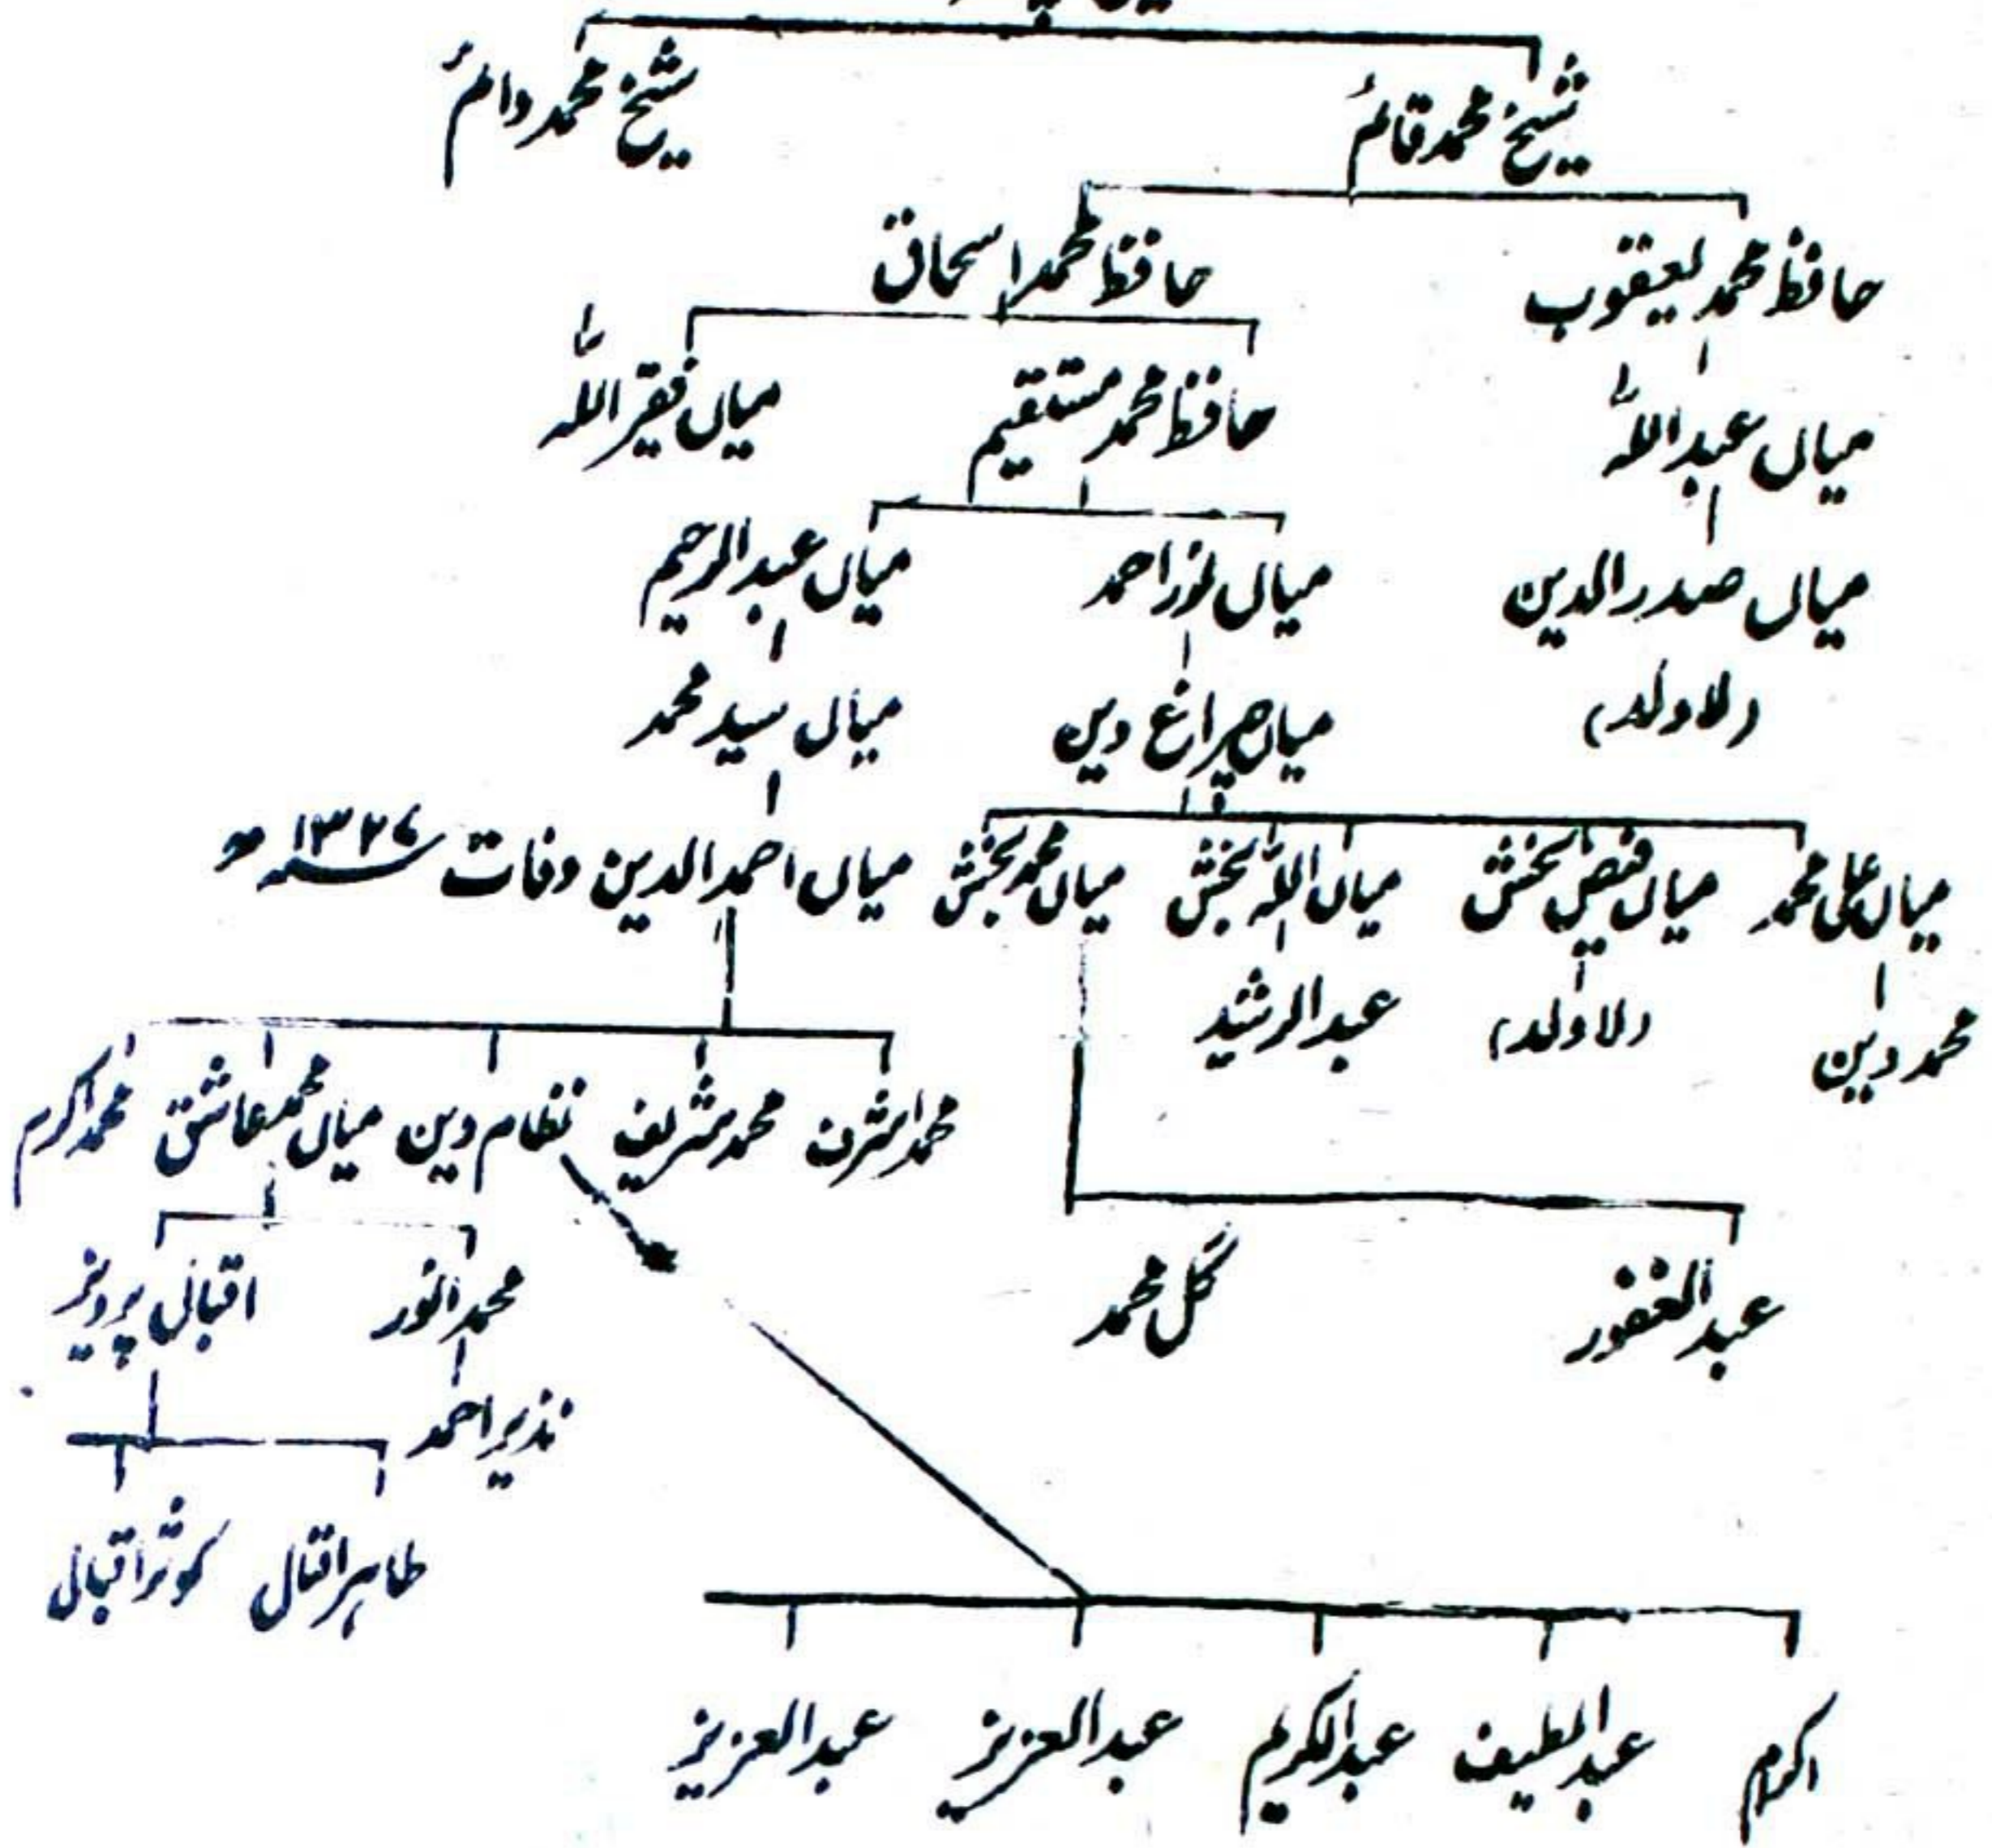 شیخ محمد قائمؒ شیخ محمد دائمؒ
حافظ محمد یعقوب حافظ محمد اسحاق
میاں عبداللہ حافظ محمد مستقیم میاں فقیر اللہ
میاں صدر الدین میاں نور احمد میاں عبدالرحیم
(لاولد) میاں چراغ دین میاں سید محمد
میاں علی محمد میاں فیض بخش میاں اللہ بخش میاں محمد بخش میاں احمد الدین وفات ۱۳۲۶ھ
محمد دین (لاولد) عبدالرشید
محمد اشرف محمد شریف نظام دین میاں محمد عاشق محمد اکرم
عبدالغفور گل محمد محمد انور اقبال پرویز
نذیر احمد
طاہر اقبال کوثر اقبال
اکرم عبدالطیف عبدالکریم عبدالعزیز عبدالعزیز